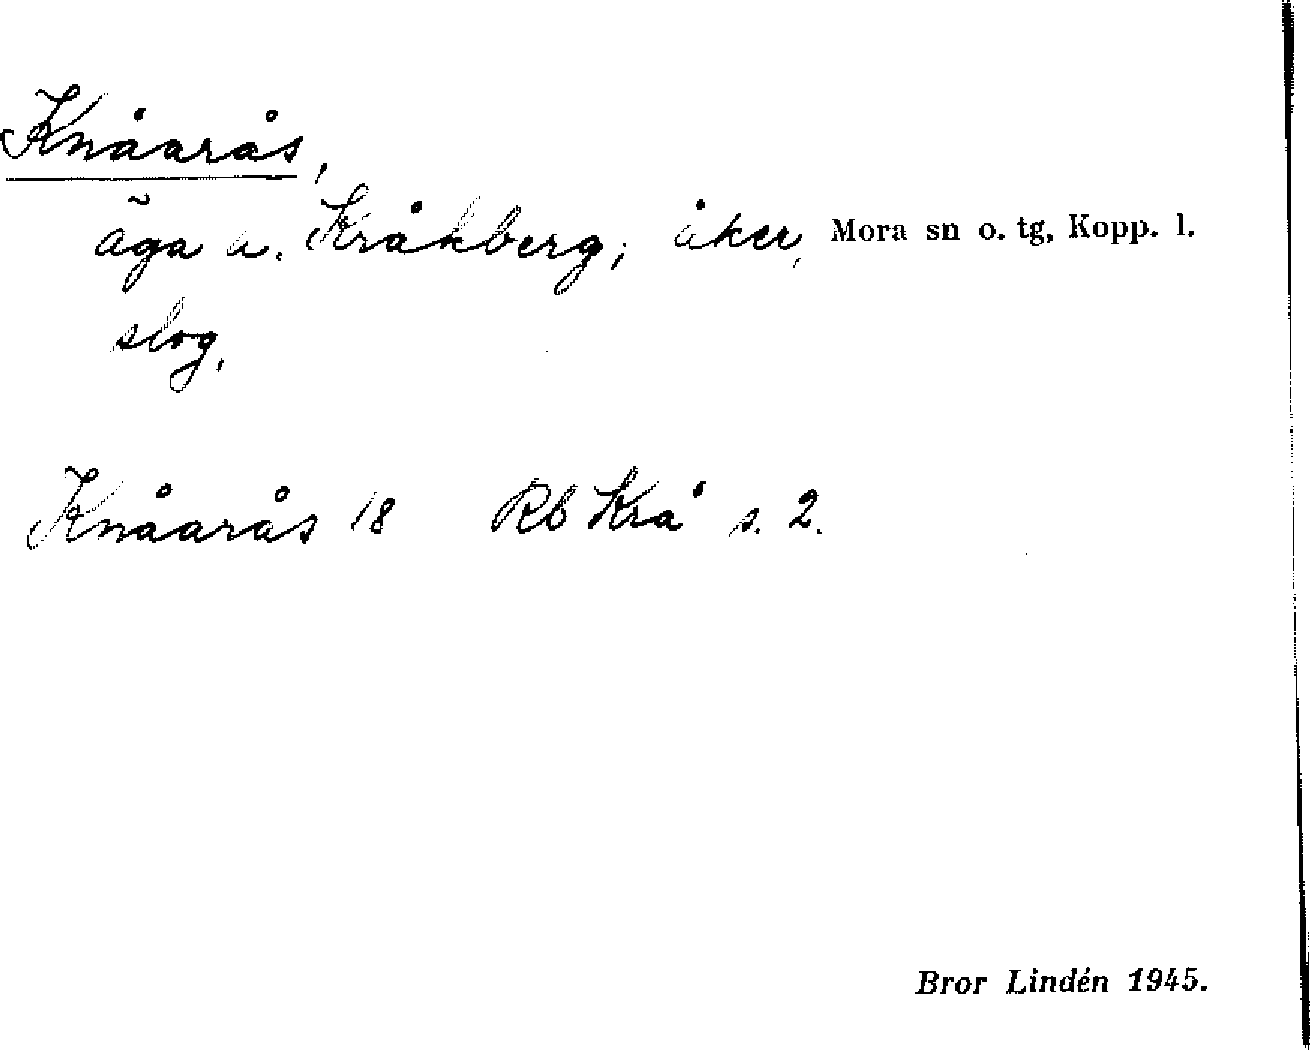 Knåarås,
äga u. Kråkberg; åker, Mora sn o. tg, Kopp. l.
slog,
Knåarås 18 Rb Krå s. 2.
Bror Lindén 1945.